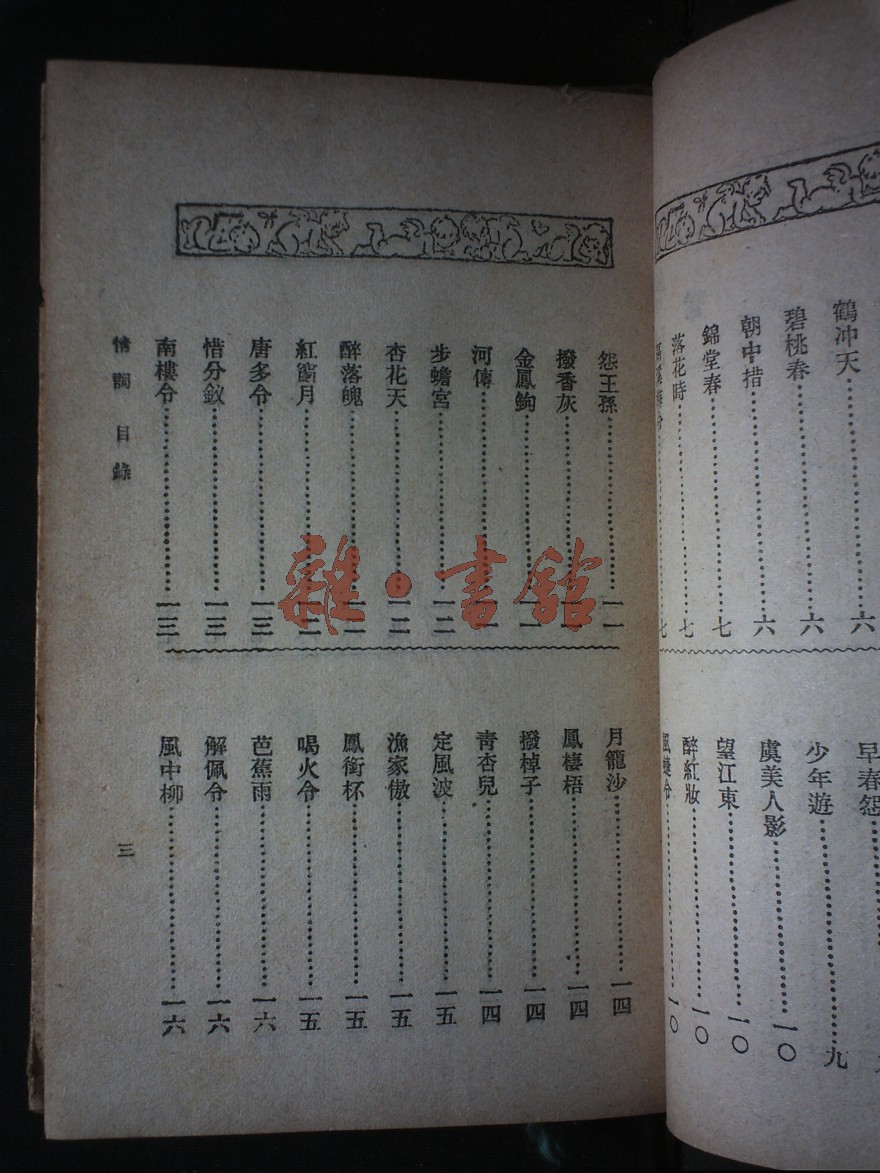 鶴冲天……六
碧桃春……六
朝中措……六
錦堂春……七
落花時……七
早春怨
少年遊……九
虞美人影……一〇
望江東……一〇
醉紅妝……一〇
怨王孫……一一
撥香灰……一一
金鳳鉤……一一
河傳……一一
步蟾宮……一二
杏花天……一二
醉落魄……一二
紅窗月……一二
唐多令……一三
惜分釵……一三
南樓令……一三
月籠沙……一四
鳳棲梧……一四
撥棹子……一四
青杏兒……一四
定風波……一五
漁家傲……一五
鳳銜杯……一五
喝火令……一五
芭蕉雨……一六
解佩令……一六
風中柳……一六
情詞 目錄
三
雜·書館